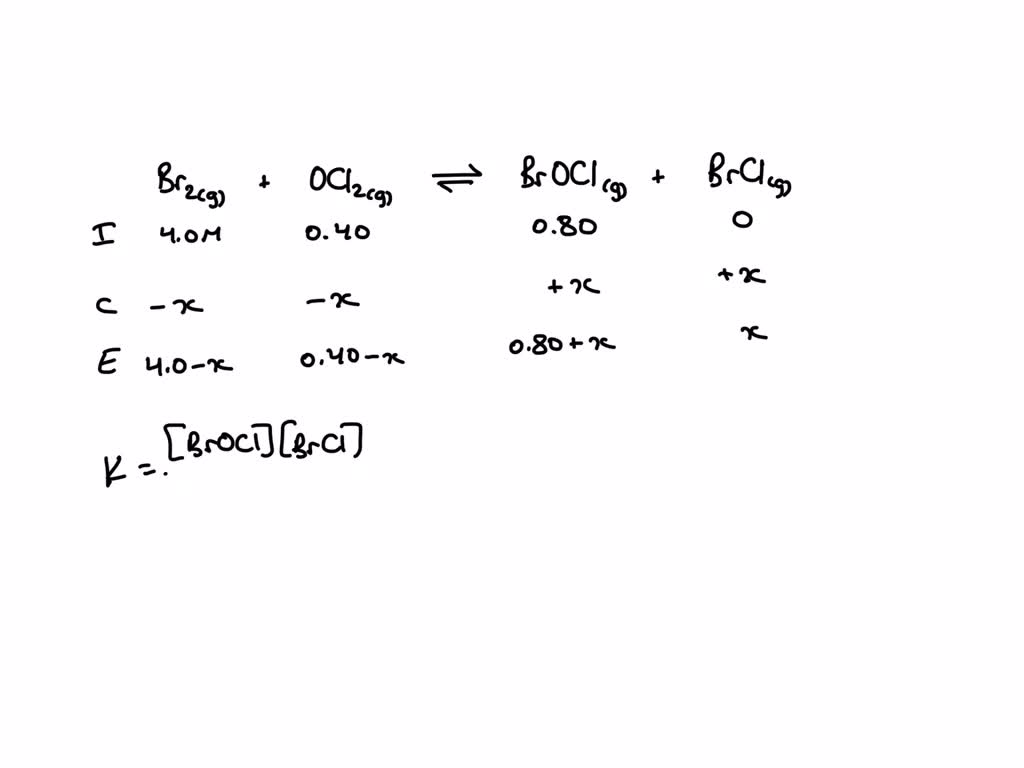 Br₂(g) + OCl₂(g) ⇌ BrOCl(g) + BrCl(g)
I 4.0M 0.40 0.80 0
C -x -x +x +x
E 4.0-x 0.40-x 0.80+x x
K = [BrOCl][BrCl]